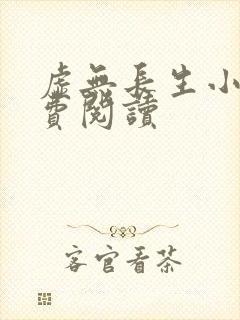 虛無長生小
費閱讀
客官看茶